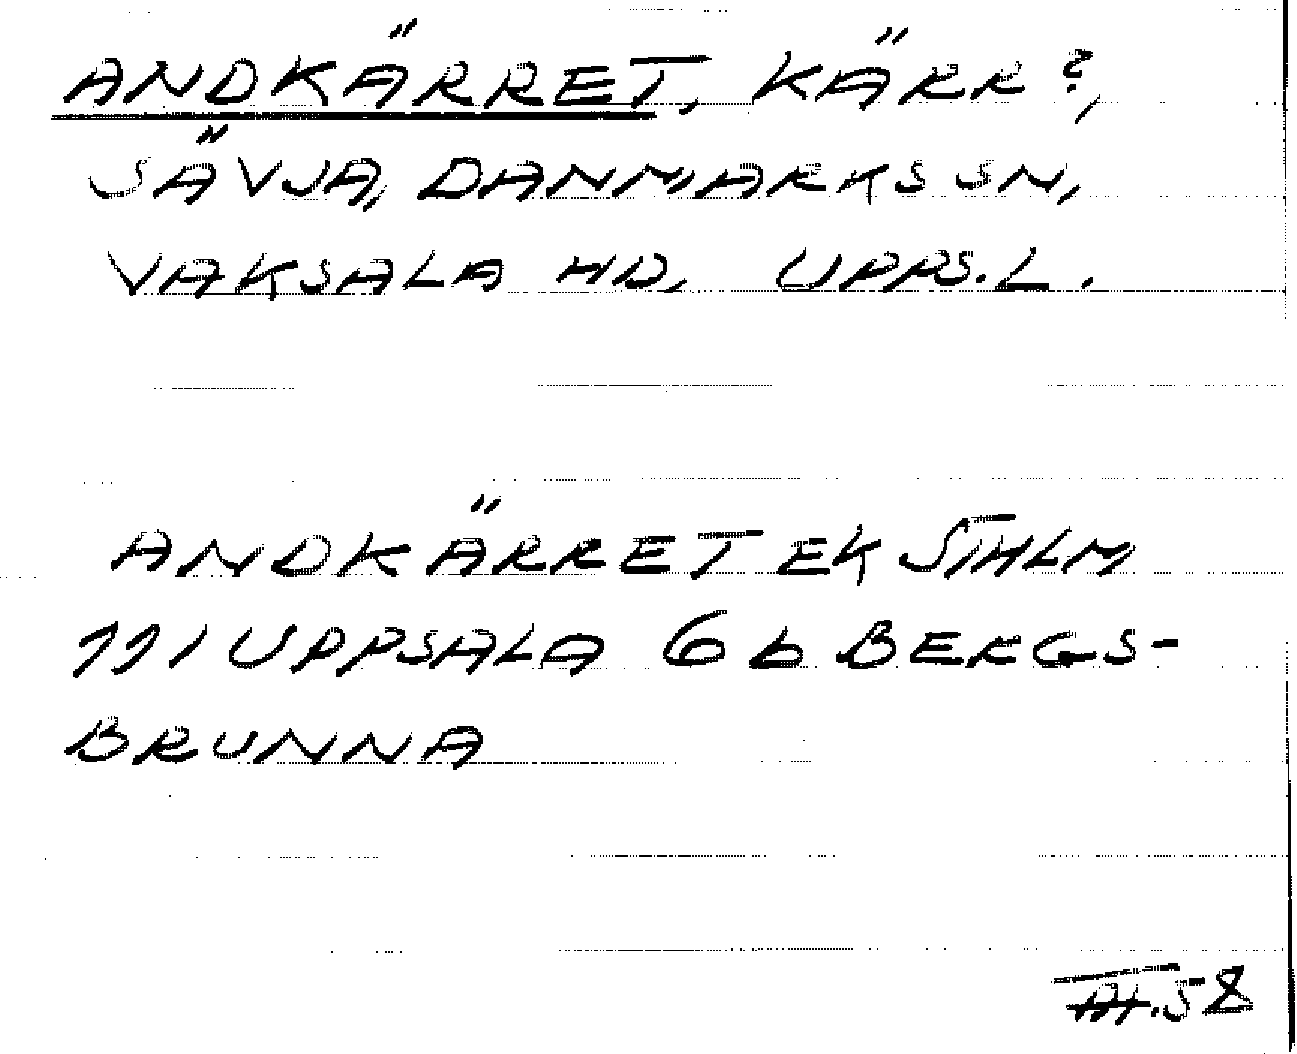 ANDKÄRRET, KÄRR?,
SÄVJA, DANMARKS SN,
VAKSALA HD, UPPS.L.
ANDKÄRRET EK STHLM
111 UPPSALA 6b BERGS-
BRUNNA